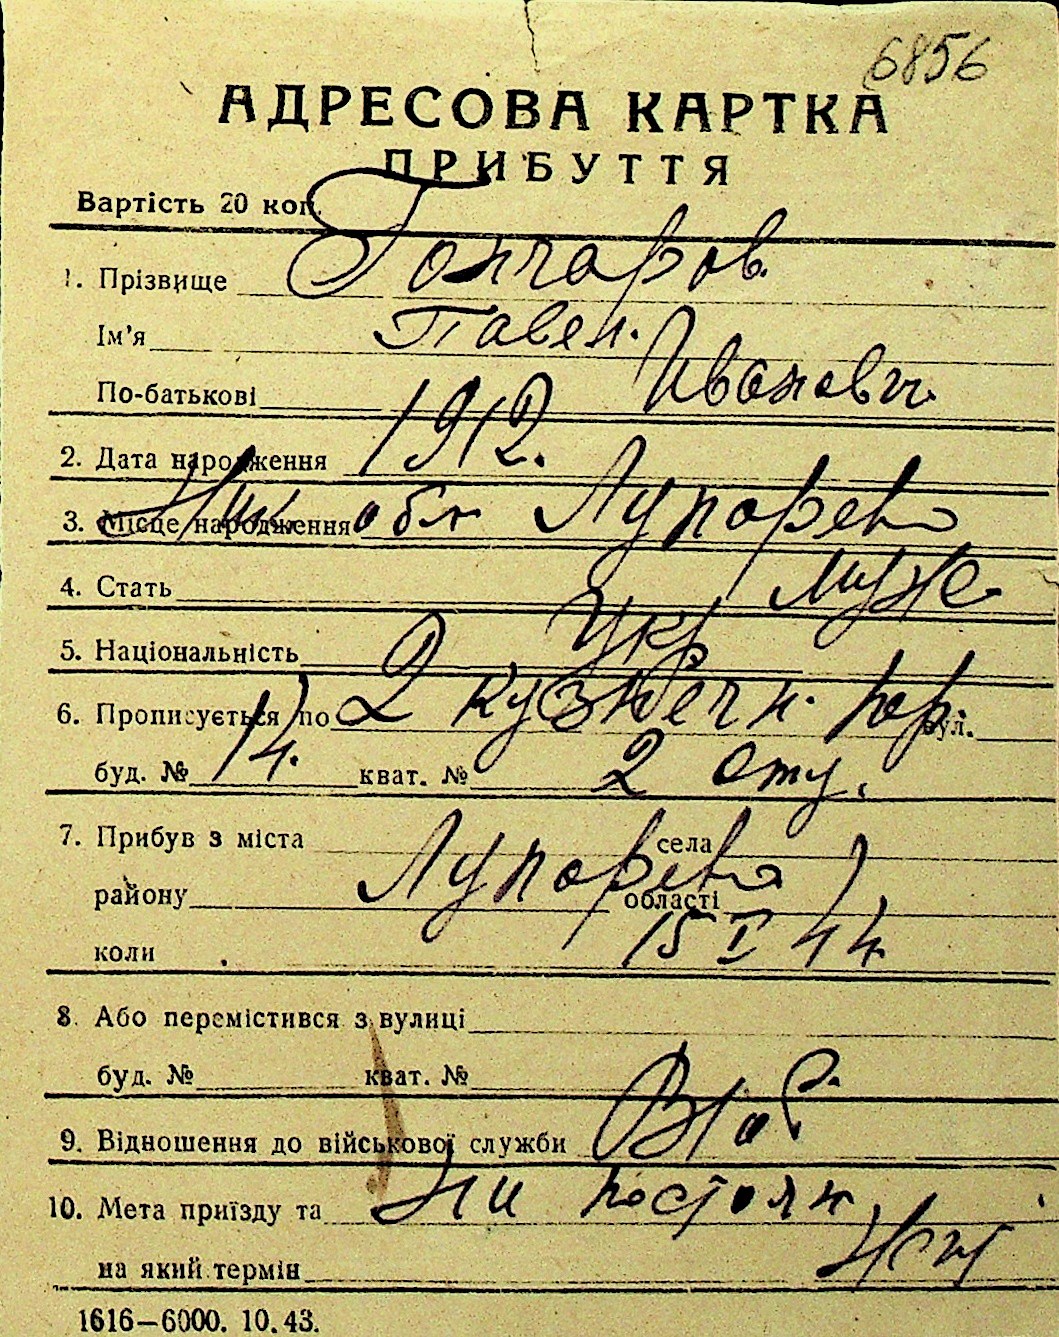 6856
АДРЕСОВА КАРТКА
ПРИБУТТЯ
Вартість 20 коп.
1. Прізвище Гончаров
Ім'я Павел.
По-батькові Иванович
2. Дата народження 1912.
3. Місце народження Ник обл Лупарево
4. Стать муж
5. Національність Укр
6. Прописується по 2 кузнечн. вул.
буд. № 14. кват. № 2
7. Прибув з міста Лупарево села
району області
коли 15 I 44
8. Або перемістився з вулиці
буд. № кват. №
9. Відношення до військової служби В/об
10. Мета приїзду та на постоян
на який термін жит
1616—6000. 10.43.